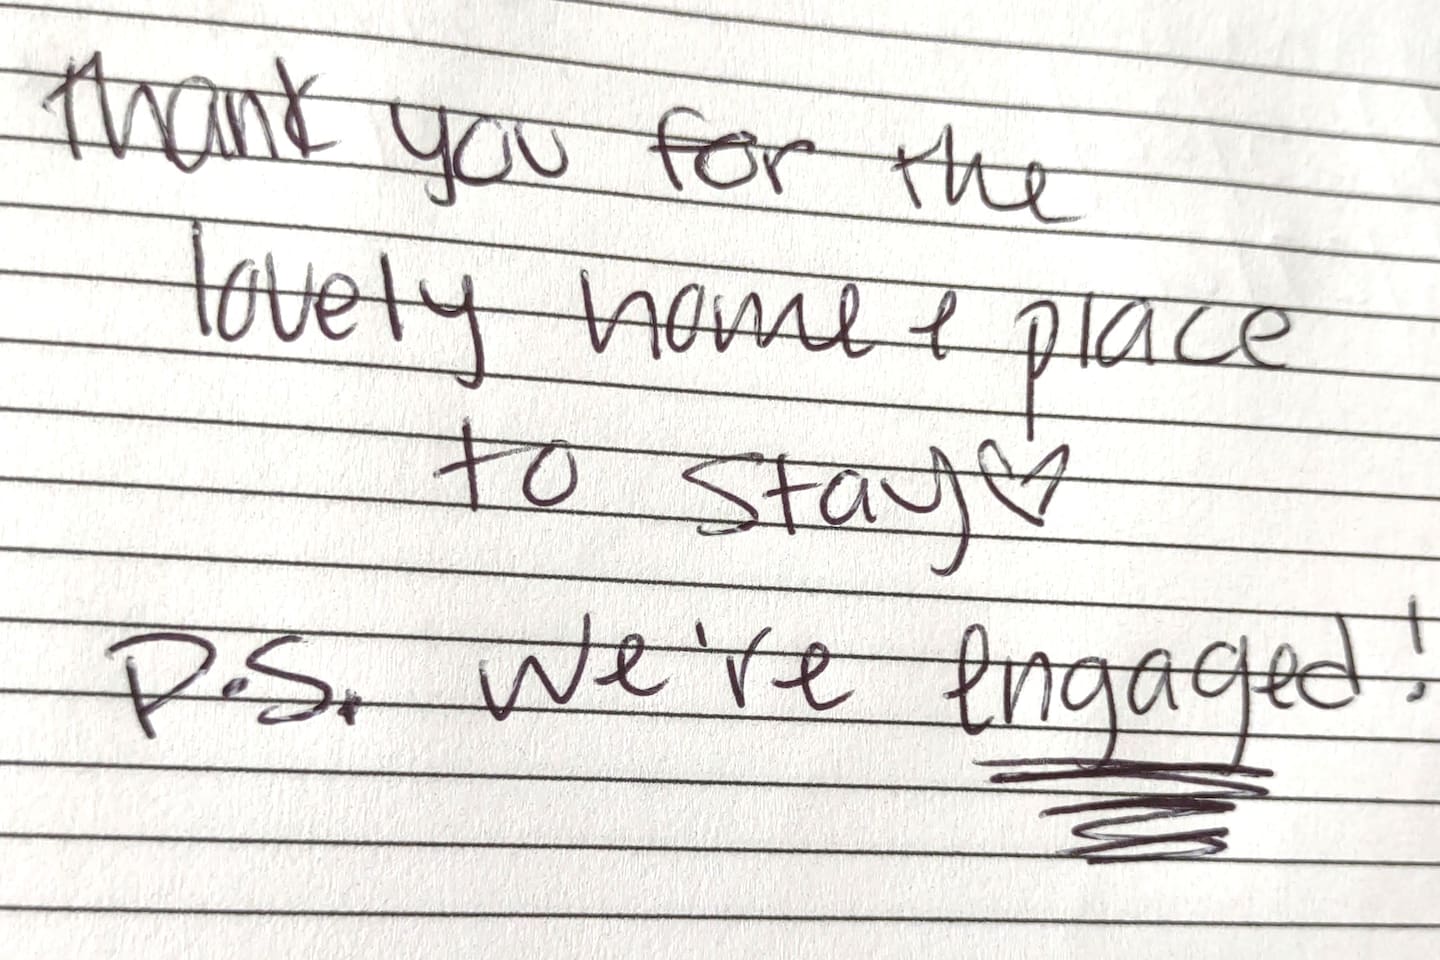 thank you for the
lovely home + place
to stay♡
P.S. we're engaged!